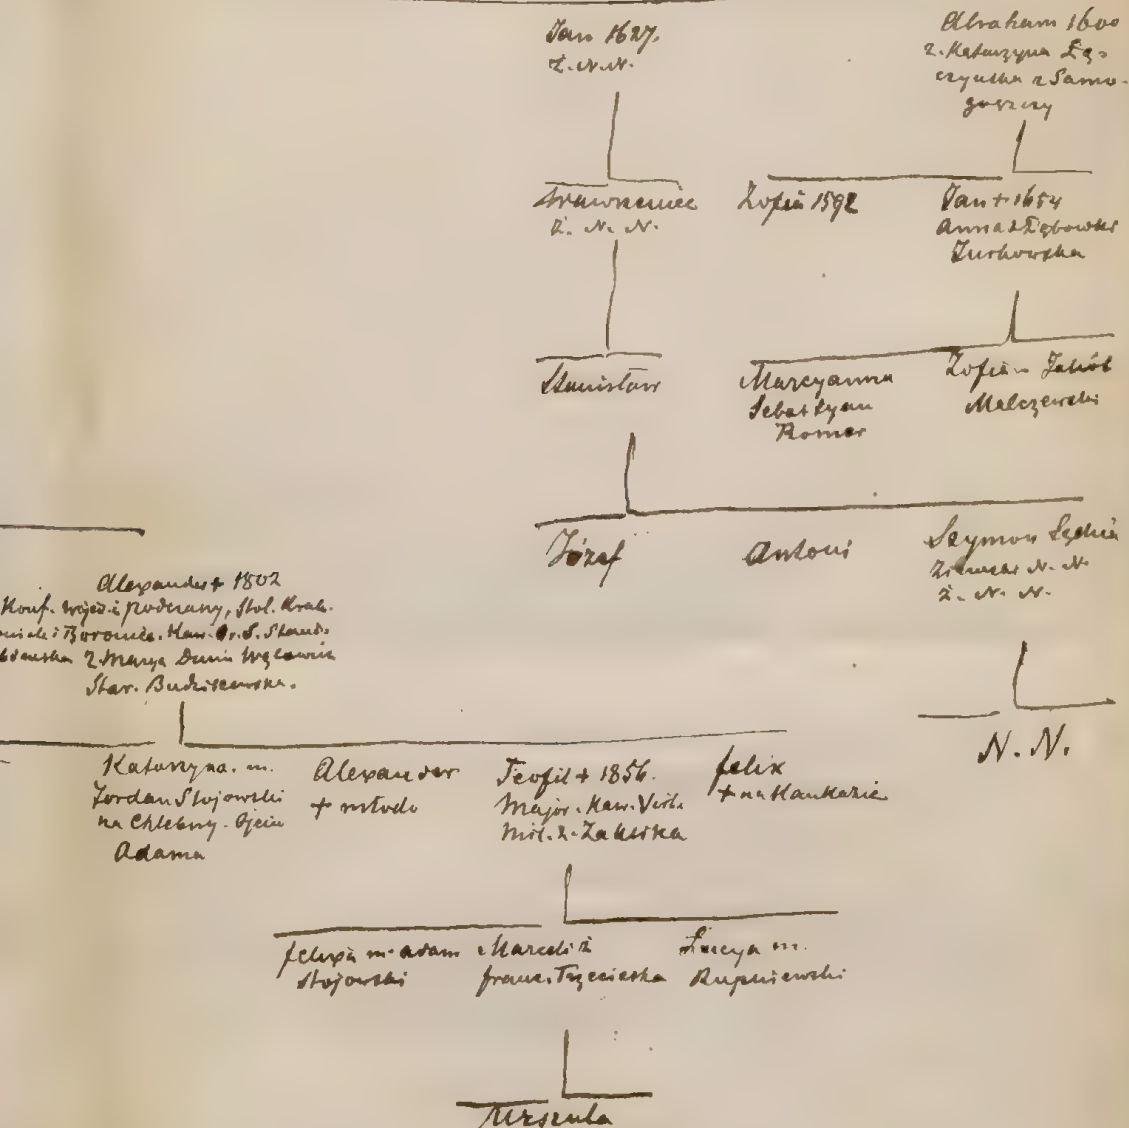 Jan 1627.
Ż. N. N.
Abraham 1600
ż. Katarzyna Łę-
czyńska z Samo-
goszczy
Wawrzeniec
Ż. N. N.
Zofia 1592
Jan + 1654
Anna z
Żuchowska
Stanisław
Maryanna
Sebastyan
Romer
Zofia m. Jakób
Malczewski
Józef
Antoni
Szymon Sędzia
N. N.
Ż. N. N.
N. N.
Alexander + 1802
Konf. wojew. i podczaszy, Stol. Krak.
Kaw. Or. S. Stanis.
2. Marya Dunin
Star.
Katarzyna. m.
Jordan Stojowski
na Chlebny. Ojciec
Adama
Alexander
+ młodo
Teofil + 1856.
Major. Kaw. Virt.
Mil. ż. Zaklika
felix
+ na Kaukazie
felixa m. Adam
Stojowski
Marceli ż
franc. Trzecieska
Łucya m.
Rupniewski
Urszula